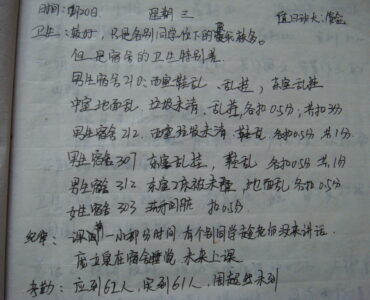 时间:月20日 星期三 值日班长:
卫生:较好,只是各别同学位下的
但是宿舍的卫生特别差.
男生宿舍210:西室鞋乱、乱挂,东室乱挂
中室地面乱 垃圾未清、乱挂,各扣0.5分,共扣3分
男生宿舍212,西室垃圾未清 鞋乱.各扣0.5分 共1分.
男生宿舍307 东室乱挂,鞋乱 各扣0.5分 共1分
男生宿舍312 东室2床被未叠,地面乱 各扣0.5分
女生宿舍303 扣0.5分
纪律:课前一小部分时间.有个别同学趁老师没来讲话.
在宿舍睡觉 未来上课
考勤:应到62人,实到61人,未到